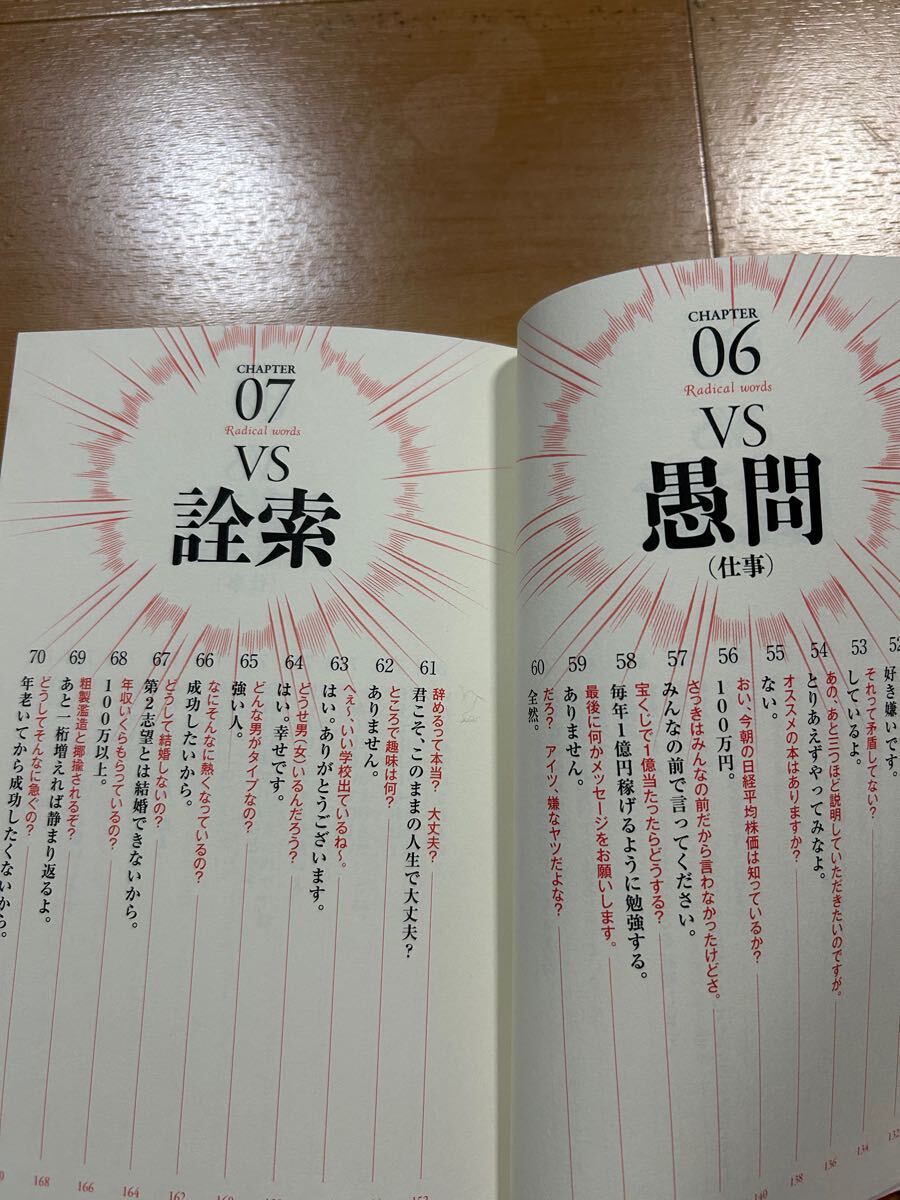 CHAPTER
06
Radical words
VS
愚問
(仕事)
52
好き嫌いです。
53
それって矛盾してない?
しているよ。
54
あの、あと三つほど説明していただきたいのですが。
とりあえずやってみなよ。
55
オススメの本はありますか?
ない。
56
おい、今朝の日経平均株価は知っているか?
100万円。
57
さっきはみんなの前だから言わなかったけどさ。
みんなの前で言ってください。
58
宝くじで1億当たったらどうする?
毎年1億円稼げるように勉強する。
59
最後に何かメッセージをお願いします。
ありません。
60
だろ? アイツ、嫌なヤツだよな?
全然。
132
134
136
138
140
CHAPTER
07
Radical words
VS
詮索
61
辞めるって本当? 大丈夫?
君こそ、このままの人生で大丈夫?
62
ところで趣味は何?
ありません。
63
へぇ〜、いい学校出ているね〜。
はい。ありがとうございます。
64
どうせ男(女)いるんだろう?
はい。幸せです。
65
どんな男がタイプなの?
強い人。
66
なにそんなに熱くなっているの?
成功したいから。
67
どうして結婚しないの?
第2志望とは結婚できないから。
68
年収いくらもらっているの?
100万以上。
69
粗製濫造と揶揄されるぞ?
あと一桁増えれば静まり返るよ。
70
どうしてそんなに急ぐの?
年老いてから成功したくないから。
162
164
166
168